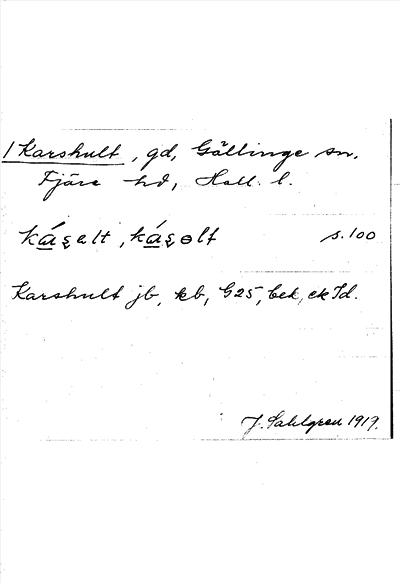 / Karshult, gd, Gällinge sn.
Fjäre hd, Hall. l.
ká̱ʂalt, ká̱ʂɵlt s.100
Karshult jb, kb, G25, bek, ek Id.
J. Sahlgren 1919.